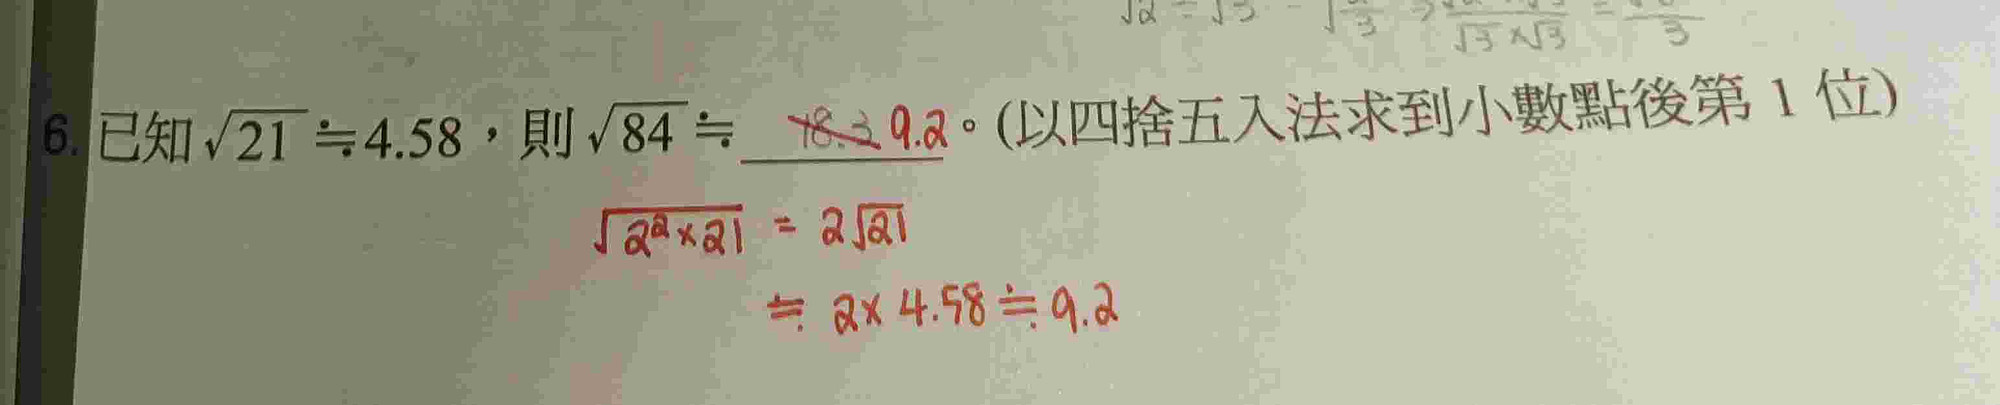 √2 ÷ √3 = √2/3 ⇒ √2×√3/√3×√3 = √6/3
6. 已知√21≒4.58,則√84≒ 18.3 9.2。(以四捨五入法求到小數點後第 1 位)
√2²×21 = 2√21
≒ 2× 4.58≒9.2